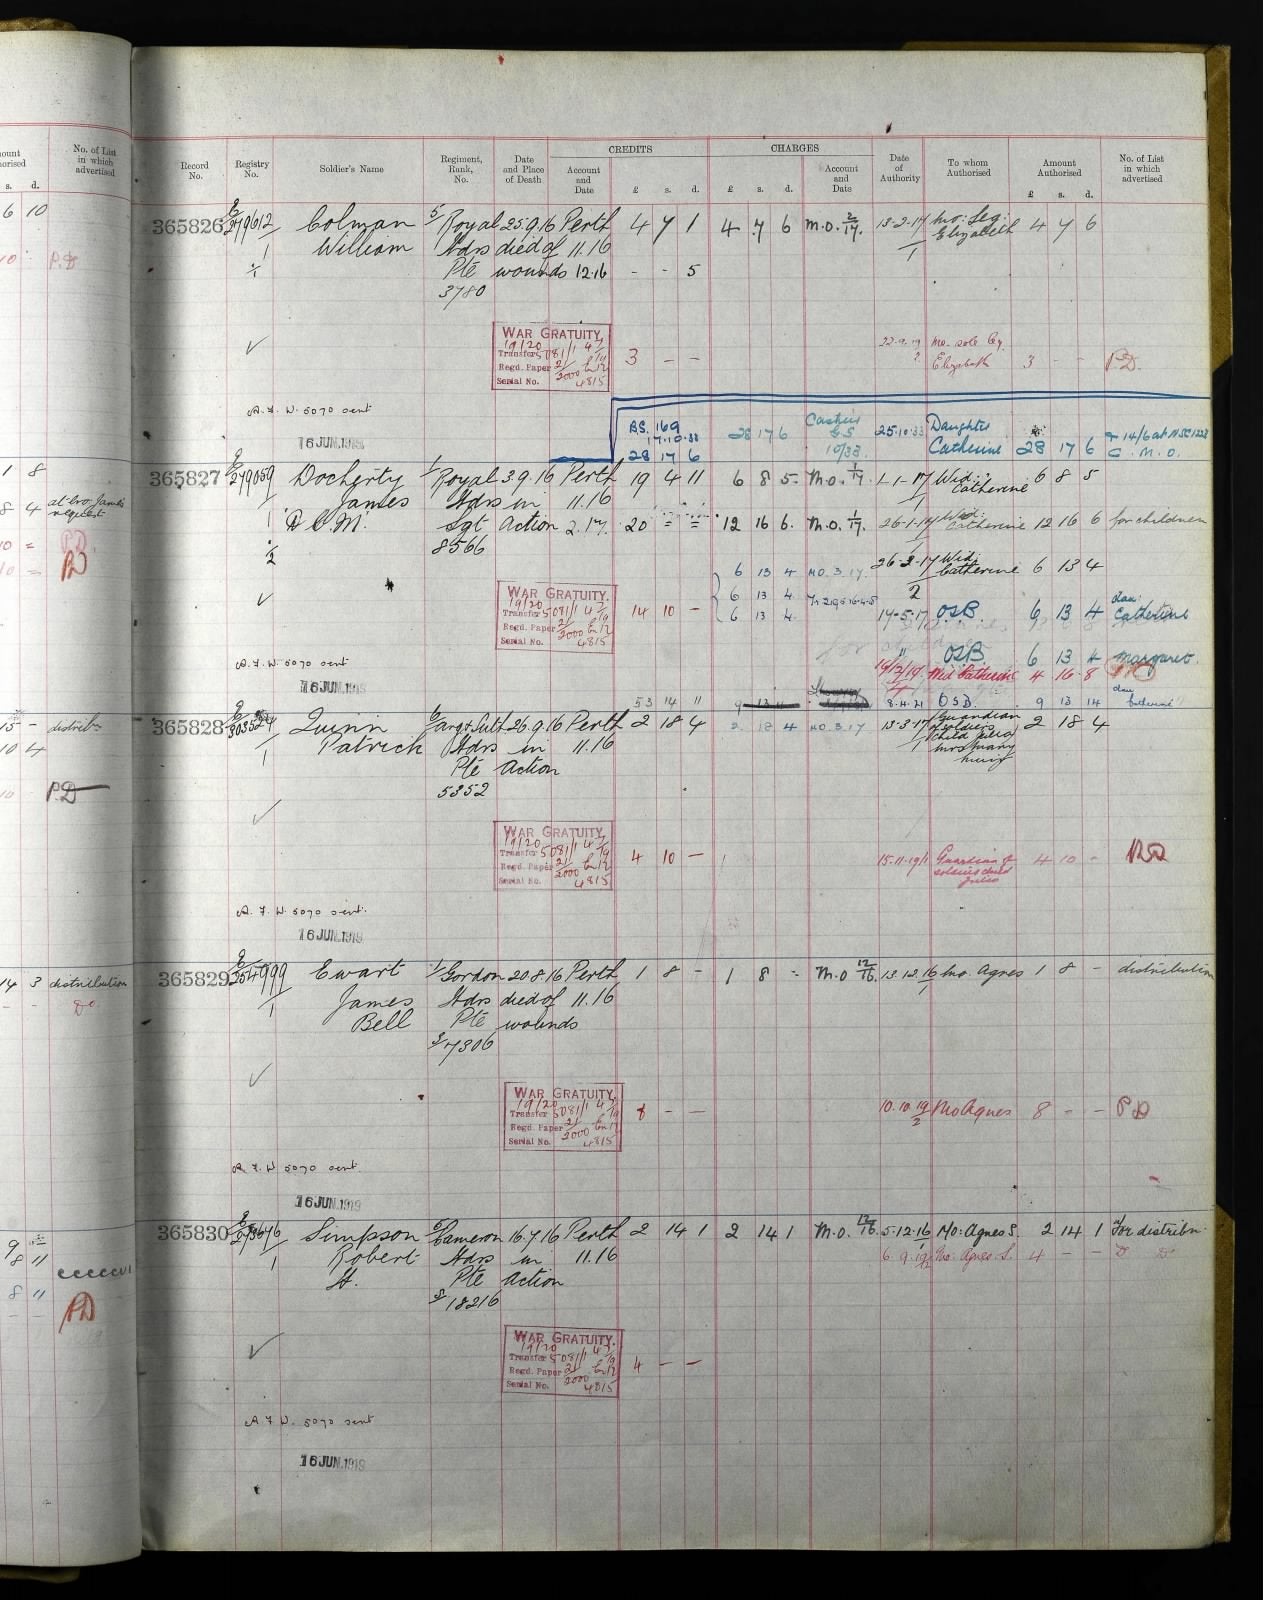 No. of List
in which
advertised
s. d.
6 10
P.D
1 8
8 4 at bro. James
request
PD
15 - distribn
10 4
P.D
14 3 distribution
Do
8 11
8 11
PD
CREDITS CHARGES
Record No. Registry No. Soldier's Name Regiment, Rank, No. Date and Place of Death Account and Date £ s. d. £ s. d. Account and Date Date of Authority To whom Authorised Amount Authorised £ s. d. No. of List in which advertised
365826 E/279612/1 Colman William 5/Royal Hdrs Pte 3780 25.9.16 died of wounds Perth 11.16 4 7 1 4 7 6 M.O. 2/17. 13-2-17/1 Mo: Leg: Elizabeth 4 7 6
12.16 - - 5
WAR GRATUITY.
19/20
Transfer 5081/1
Regd. Paper 21/2000
Serial No. 4815
3 - - 22.9.19 2 Mo. sole Leg. Elizabeth 3 - - P.D.
A.F.W. 5070 sent
16 JUN.1919
B.S. 169
17.10.33
28 17 6 28 17 6 Cashier
G.S.
10/33. 25.10.33 Daughter
Catherine 28 17 6
365827 E/279059/1 Docherty James D.C.M. 1/Royal Hdrs Sgt 8566 3.9.16 in Action Perth 11.16 19 4 11 6 8 5 M.O. 1/17 1-1-17 Wid: Catherine 6 8 5
2.17. 20 = = 12 16 6. M.O. 1/17. 26-1-17 Wid: Catherine 12 16 6 for children
6 13 4 M.O. 3.17. 26-2-17/2 Wid: Catherine 6 13 4
6 13 4
WAR GRATUITY.
19/20
Transfer 5081/1
Regd. Paper 21/2000
Serial No. 4815
14 10 - 6 13 4 14-5-17 OSB 6 13 4 dau: Catherine
" OSB 6 13 4 Margaret.
A.F.W. 5070 sent
19/12/19 Wid Catherine 4 16 8
16 JUN.1919
53 14 11 8.4.21 O.S.B. 9 13 14 dau Catherine
365828 E/303524/1 Quinn Patrick 6/Arg & Suth Hdrs Pte 5352 26.9.16 in Action Perth 11.16 2 18 4 2 18 4 M.O. 3.17 13-3-17/1 Guardian of soldier's child Julia Mrs Mary 2 18 4
WAR GRATUITY.
19/20
Transfer 5081/1
Regd. Paper 21/2000
Serial No. 4815
4 10 - 15.11.19/1 Guardian of soldiers child Julia 4 10 - PD
A.F.W. 5070 sent.
16 JUN.1919
365829 E/254999/1 Ewart James Bell 1/Gordon Hdrs Pte S/7306 20.8.16 died of wounds Perth 11.16 1 8 - 1 8 - M.O 12/16. 13.12.16/1 Mo. Agnes 1 8 - distribution
WAR GRATUITY.
19/20
Transfer 5081/1
Regd. Paper 21/2000
Serial No. 4815
8 - - 10.10.19/2 Mo Agnes 8 - - PD
A.F.W 5070 sent.
16 JUN.1919
365830 E/273676/1 Simpson Robert St. 6/Cameron Hdrs Pte S/18216 16.7.16 in Action Perth 11.16 2 14 1 2 14 1 M.O. 12/16. 5.12.16/1 Mo: Agnes S. 2 14 1 For distribn.
6.9.19/2 Mo: Agnes S. 4 - - D D
WAR GRATUITY.
19/20
Transfer 5081/1
Regd. Paper 21/2000
Serial No. 4815
4 - -
A.F.W. 5070 sent
16 JUN.1919